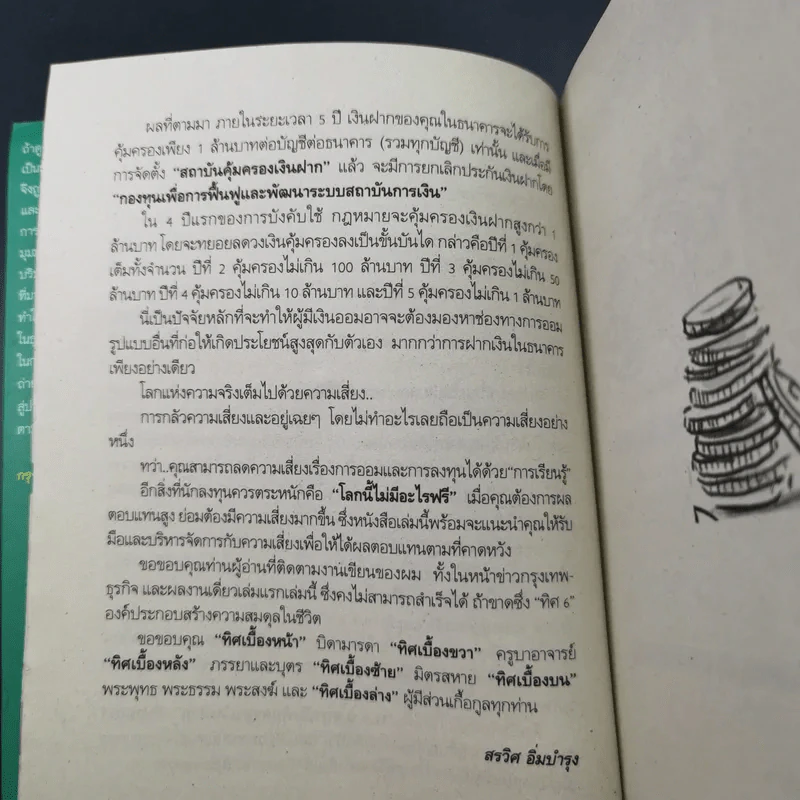 ผลที่ตามมา ภายในระยะเวลา 5 ปี เงินฝากของคุณในธนาคารจะได้รับการ
คุ้มครองเพียง 1 ล้านบาทต่อบัญชีต่อธนาคาร (รวมทุกบัญชี) เท่านั้น และเมื่อมี
การจัดตั้ง “สถาบันคุ้มครองเงินฝาก” แล้ว จะมีการยกเลิกประกันเงินฝากโดย
“กองทุนเพื่อการฟื้นฟูและพัฒนาระบบสถาบันการเงิน”
ใน 4 ปีแรกของการบังคับใช้ กฎหมายจะคุ้มครองเงินฝากสูงกว่า 1
ล้านบาท โดยจะทยอยลดวงเงินคุ้มครองลงเป็นขั้นบันได กล่าวคือปีที่ 1 คุ้มครอง
เต็มทั้งจำนวน ปีที่ 2 คุ้มครองไม่เกิน 100 ล้านบาท ปีที่ 3 คุ้มครองไม่เกิน 50
ล้านบาท ปีที่ 4 คุ้มครองไม่เกิน 10 ล้านบาท และปีที่ 5 คุ้มครองไม่เกิน 1 ล้านบาท
นี่เป็นปัจจัยหลักที่จะทำให้ผู้มีเงินออมอาจจะต้องมองหาช่องทางการออม
รูปแบบอื่นที่ก่อให้เกิดประโยชน์สูงสุดกับตัวเอง มากกว่าการฝากเงินในธนาคาร
เพียงอย่างเดียว
โลกแห่งความจริงเต็มไปด้วยความเสี่ยง..
การกลัวความเสี่ยงและอยู่เฉยๆ โดยไม่ทำอะไรเลยถือเป็นความเสี่ยงอย่าง
หนึ่ง
ทว่า..คุณสามารถลดความเสี่ยงเรื่องการออมและการลงทุนได้ด้วย“การเรียนรู้”
อีกสิ่งที่นักลงทุนควรตระหนักคือ “โลกนี้ไม่มีอะไรฟรี” เมื่อคุณต้องการผล
ตอบแทนสูง ย่อมต้องมีความเสี่ยงมากขึ้น ซึ่งหนังสือเล่มนี้พร้อมจะแนะนำคุณให้รับ
มือและบริหารจัดการกับความเสี่ยงเพื่อให้ได้ผลตอบแทนตามที่คาดหวัง
ขอขอบคุณท่านผู้อ่านที่ติดตามงานเขียนของผม ทั้งในหน้าข่าวกรุงเทพ-
ธุรกิจ และผลงานเดี่ยวเล่มแรกเล่มนี้ ซึ่งคงไม่สามารถสำเร็จได้ ถ้าขาดซึ่ง “ทิศ 6”
องค์ประกอบสร้างความสมดุลในชีวิต
ขอขอบคุณ “ทิศเบื้องหน้า” บิดามารดา “ทิศเบื้องขวา” ครูบาอาจารย์
“ทิศเบื้องหลัง” ภรรยาและบุตร “ทิศเบื้องซ้าย” มิตรสหาย “ทิศเบื้องบน”
พระพุทธ พระธรรม พระสงฆ์ และ “ทิศเบื้องล่าง” ผู้มีส่วนเกื้อกูลทุกท่าน
สรวิศ อิ่มบำรุง